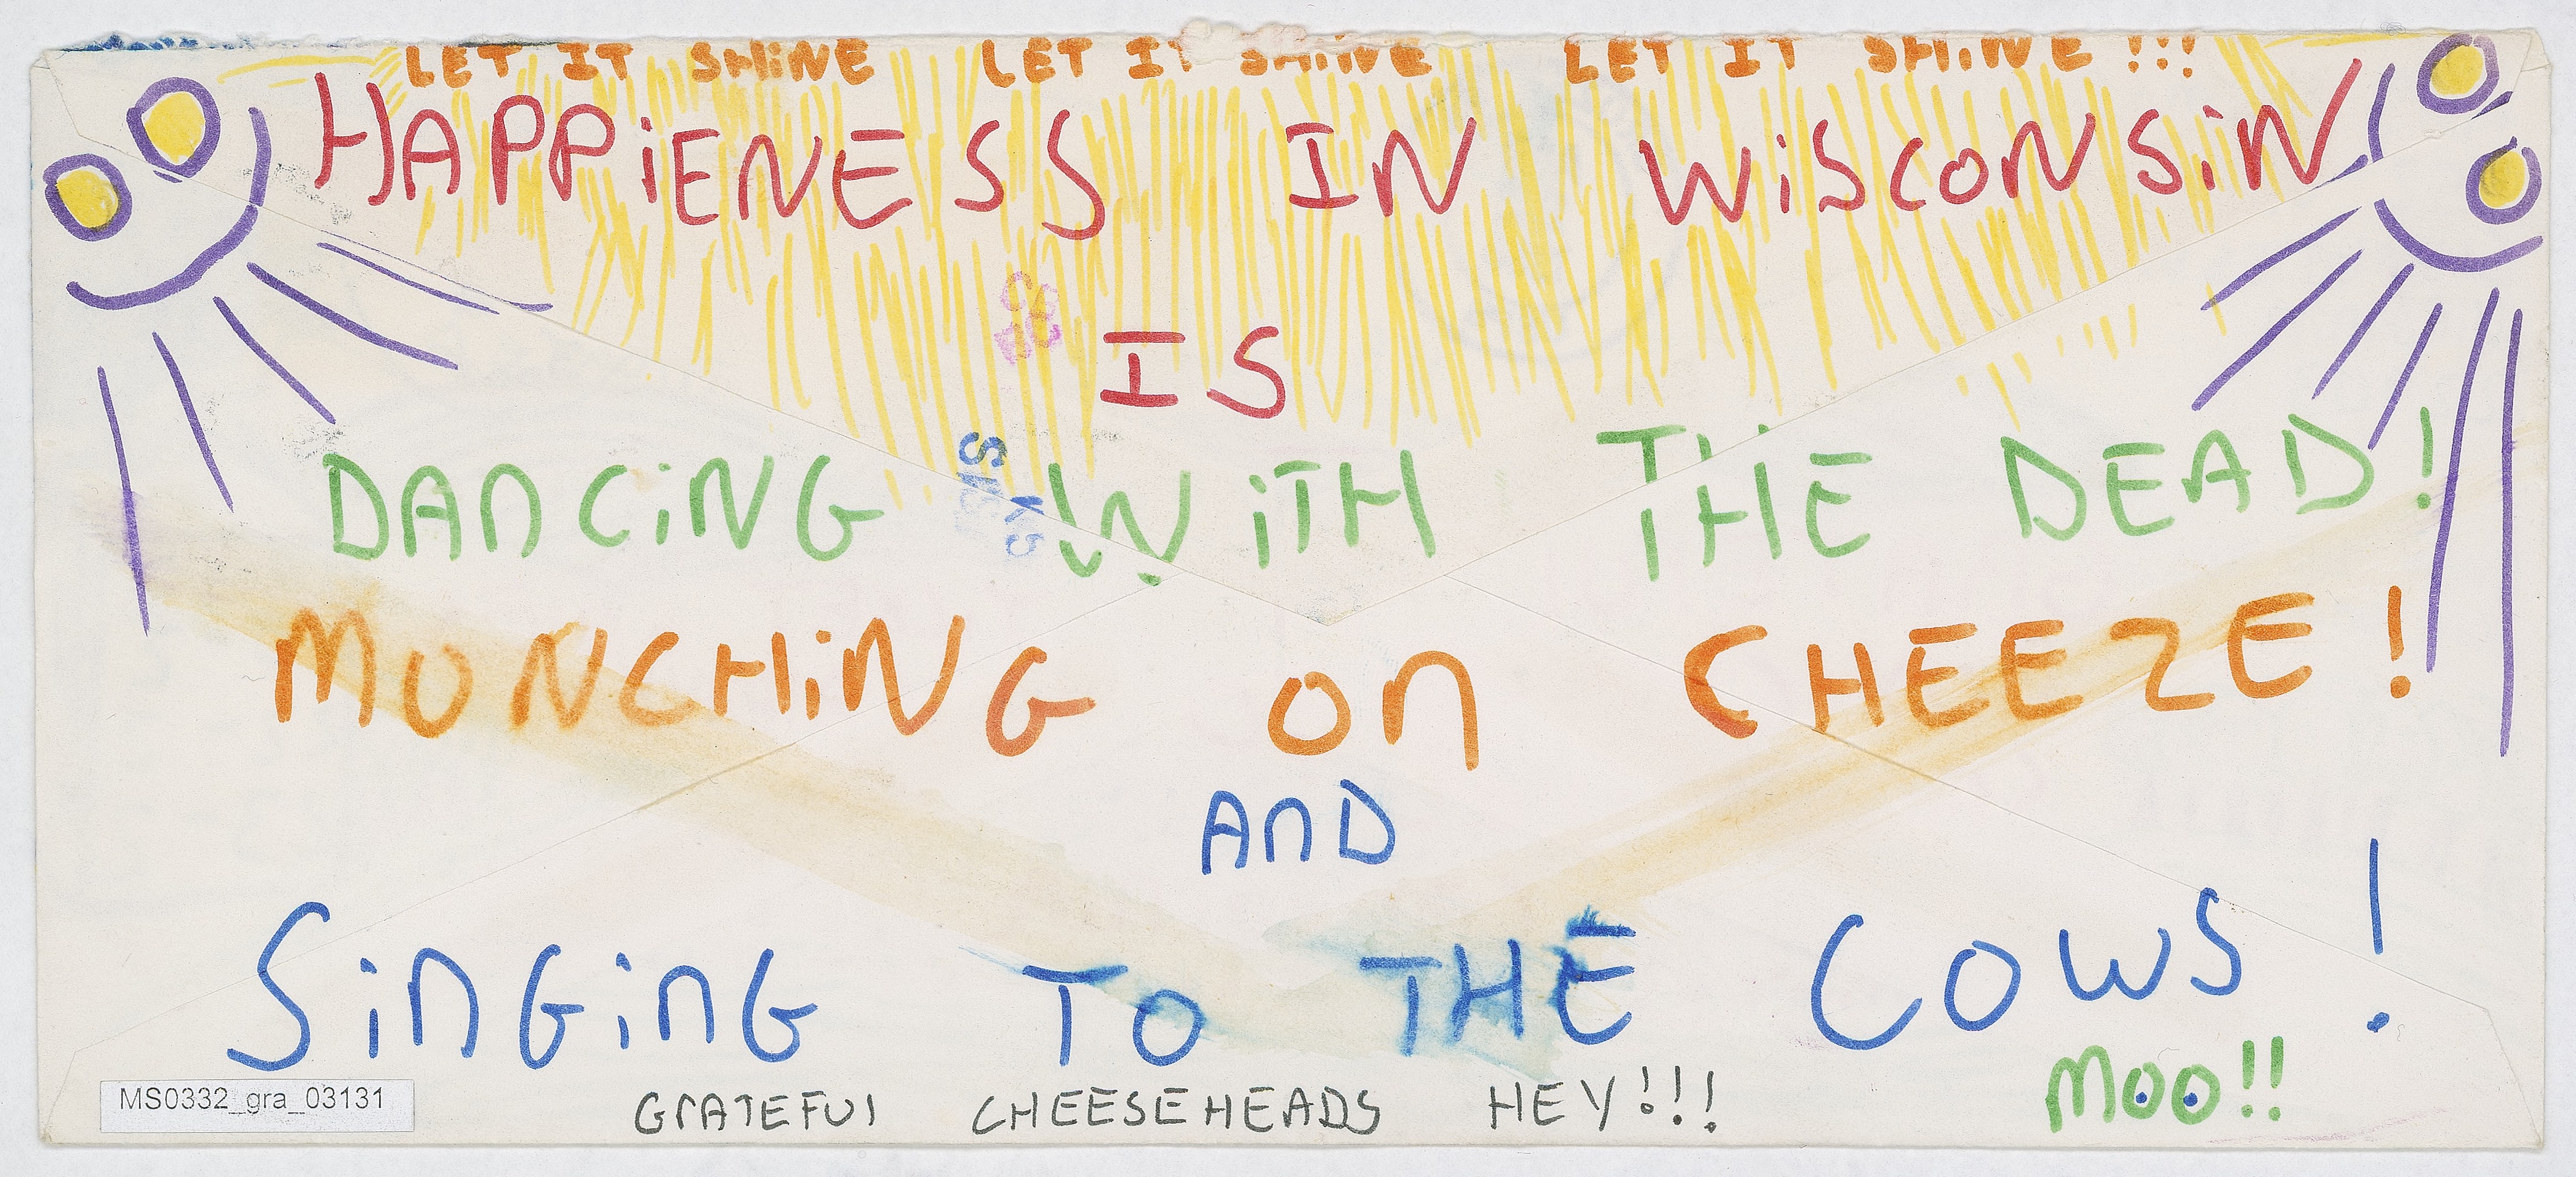 LET IT SHINE LET IT SHINE LET IT SHINE!!!
HAPPiENESS IN WiSCONSiN
IS
DANCiNG WiTH THE DEAD!
MUNCHiNG on CHEEZE!
AnD
SinGinG TO THE COWS!
MOO!!
GrATEFUl CHEESEHEADS HEY!!!
MS0332_gra_03131